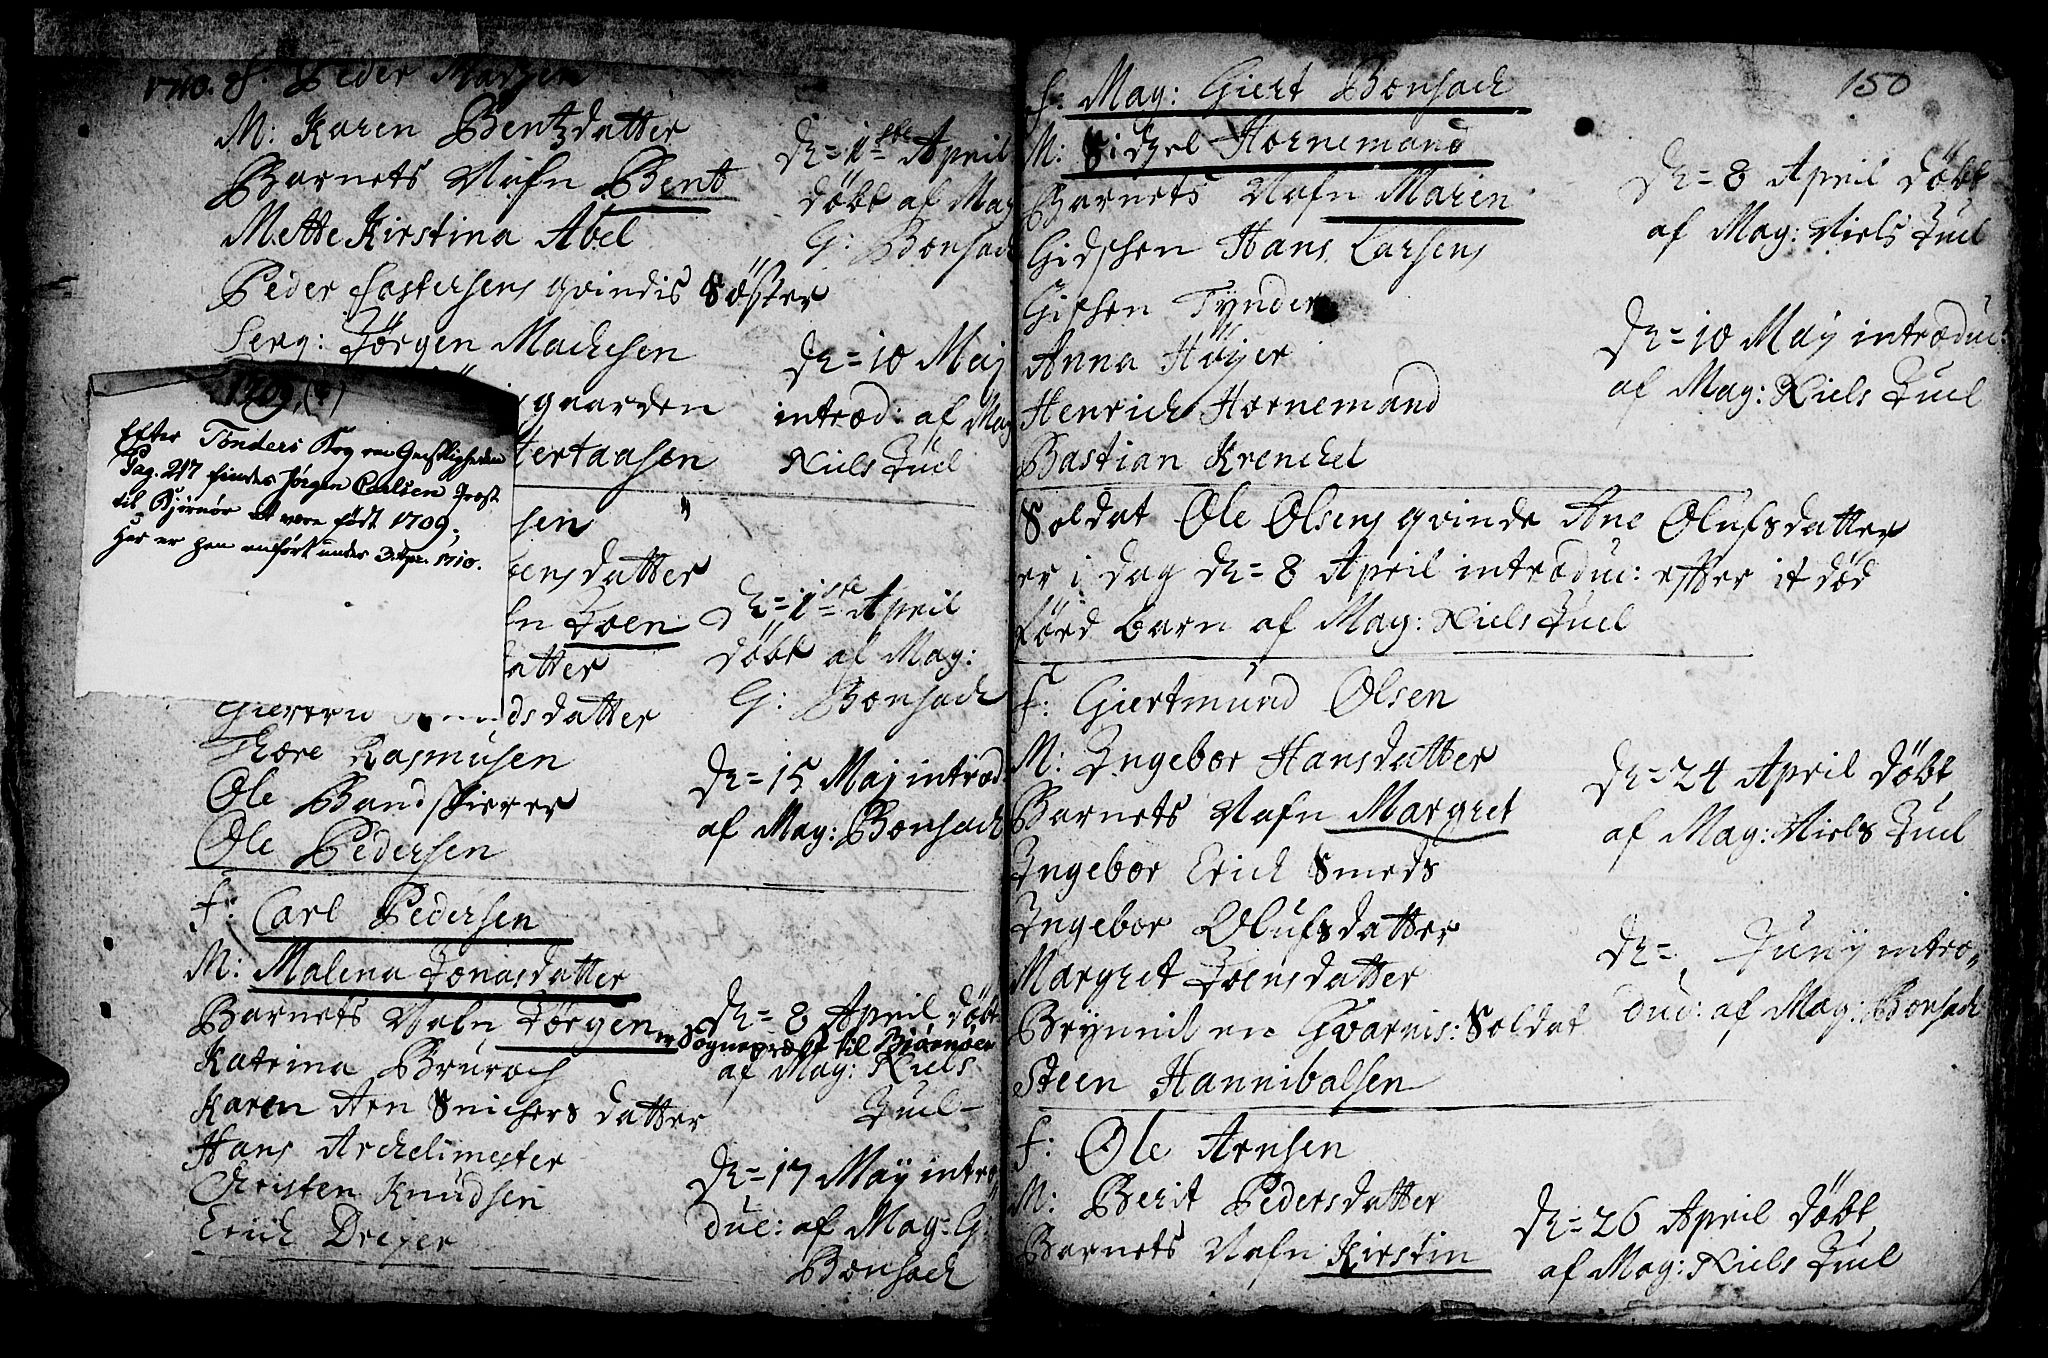 1710. F: Peder Madzen
M: Karen Bentzdatter
Barnets Nafn Bent
Mette Kirstina Abel
Peder Castersens qvindis Søster
Serg: Jørgen Machesen
gaarden
tertaasen
dn = 1ste April
döbt af Mag
G: Bonsach
dn = 10 Maj
introd: af Mag
Niels Juel
1709, (?)
Efter Tønders Bog om Geistligheden
Pag. 217 findes Jørgen Carlsen Præst
til Bjørnør at være født 1709;
Her er han anført under 3. Apr. 1710.
sen
ensdatter
fn Joen
datter
dsdatter
Thore Rasmusen
Ole Bandskierer
Ole Pedersen
dn = 1ste April
döbt af Mag:
G: Bonsach
dn = 15 Maj introd
af Mag: Bonsach
F: Carl Pedersen
M: Malena Jonasdatter
Barnets Nafn Jörgen Sognepræst til Biørnøer
Katrina Bruroch
Karen Arn Snichers datter
Hans Archelimester
Christen Knudsen
Erich Dreyer
dn = 8 April döbt
af Mag: Niels
Juel
dn = 17 Maij intro
duc: af Mag: G:
Bonsach
150
F: Mag: Giert Bonsach
M: Sidzel Hornemand
Barnets Nafn Maren
Gidschen Hans Larsens
Gischen Tynder
Anna Höijer
Henrich Hornemand
Bastian Krenchel
dn = 8 April döbt
af Mag: Niels Juel
dn = 10 Maij introduc:
af Mag: Niels Juel
Soldat Ole Olsens qvinde Ane Olufsdatter
er i dag dn = 8 April introduc: efter it død
förd barn af Mag: Niels Juel
F: Giertmund Olsen
M: Ingebor Hansdatter
Barnets Nafn Margret
Ingebor Erich Smeds
Ingebor Olufsdatter
Margret Joensdatter
Brynnil en Gvarnis: Soldat
Steen Hannibalsen
dn = 24 April döbt
af Mag: Niels Juel
dn = Junij intro
duc: af Mag: Bonsach
F: Ole Arnsen
M: Berit Pedersdatter
Barnets Nafn Kirstin
dn = 26 April döbt
af Mag: Niels Juel